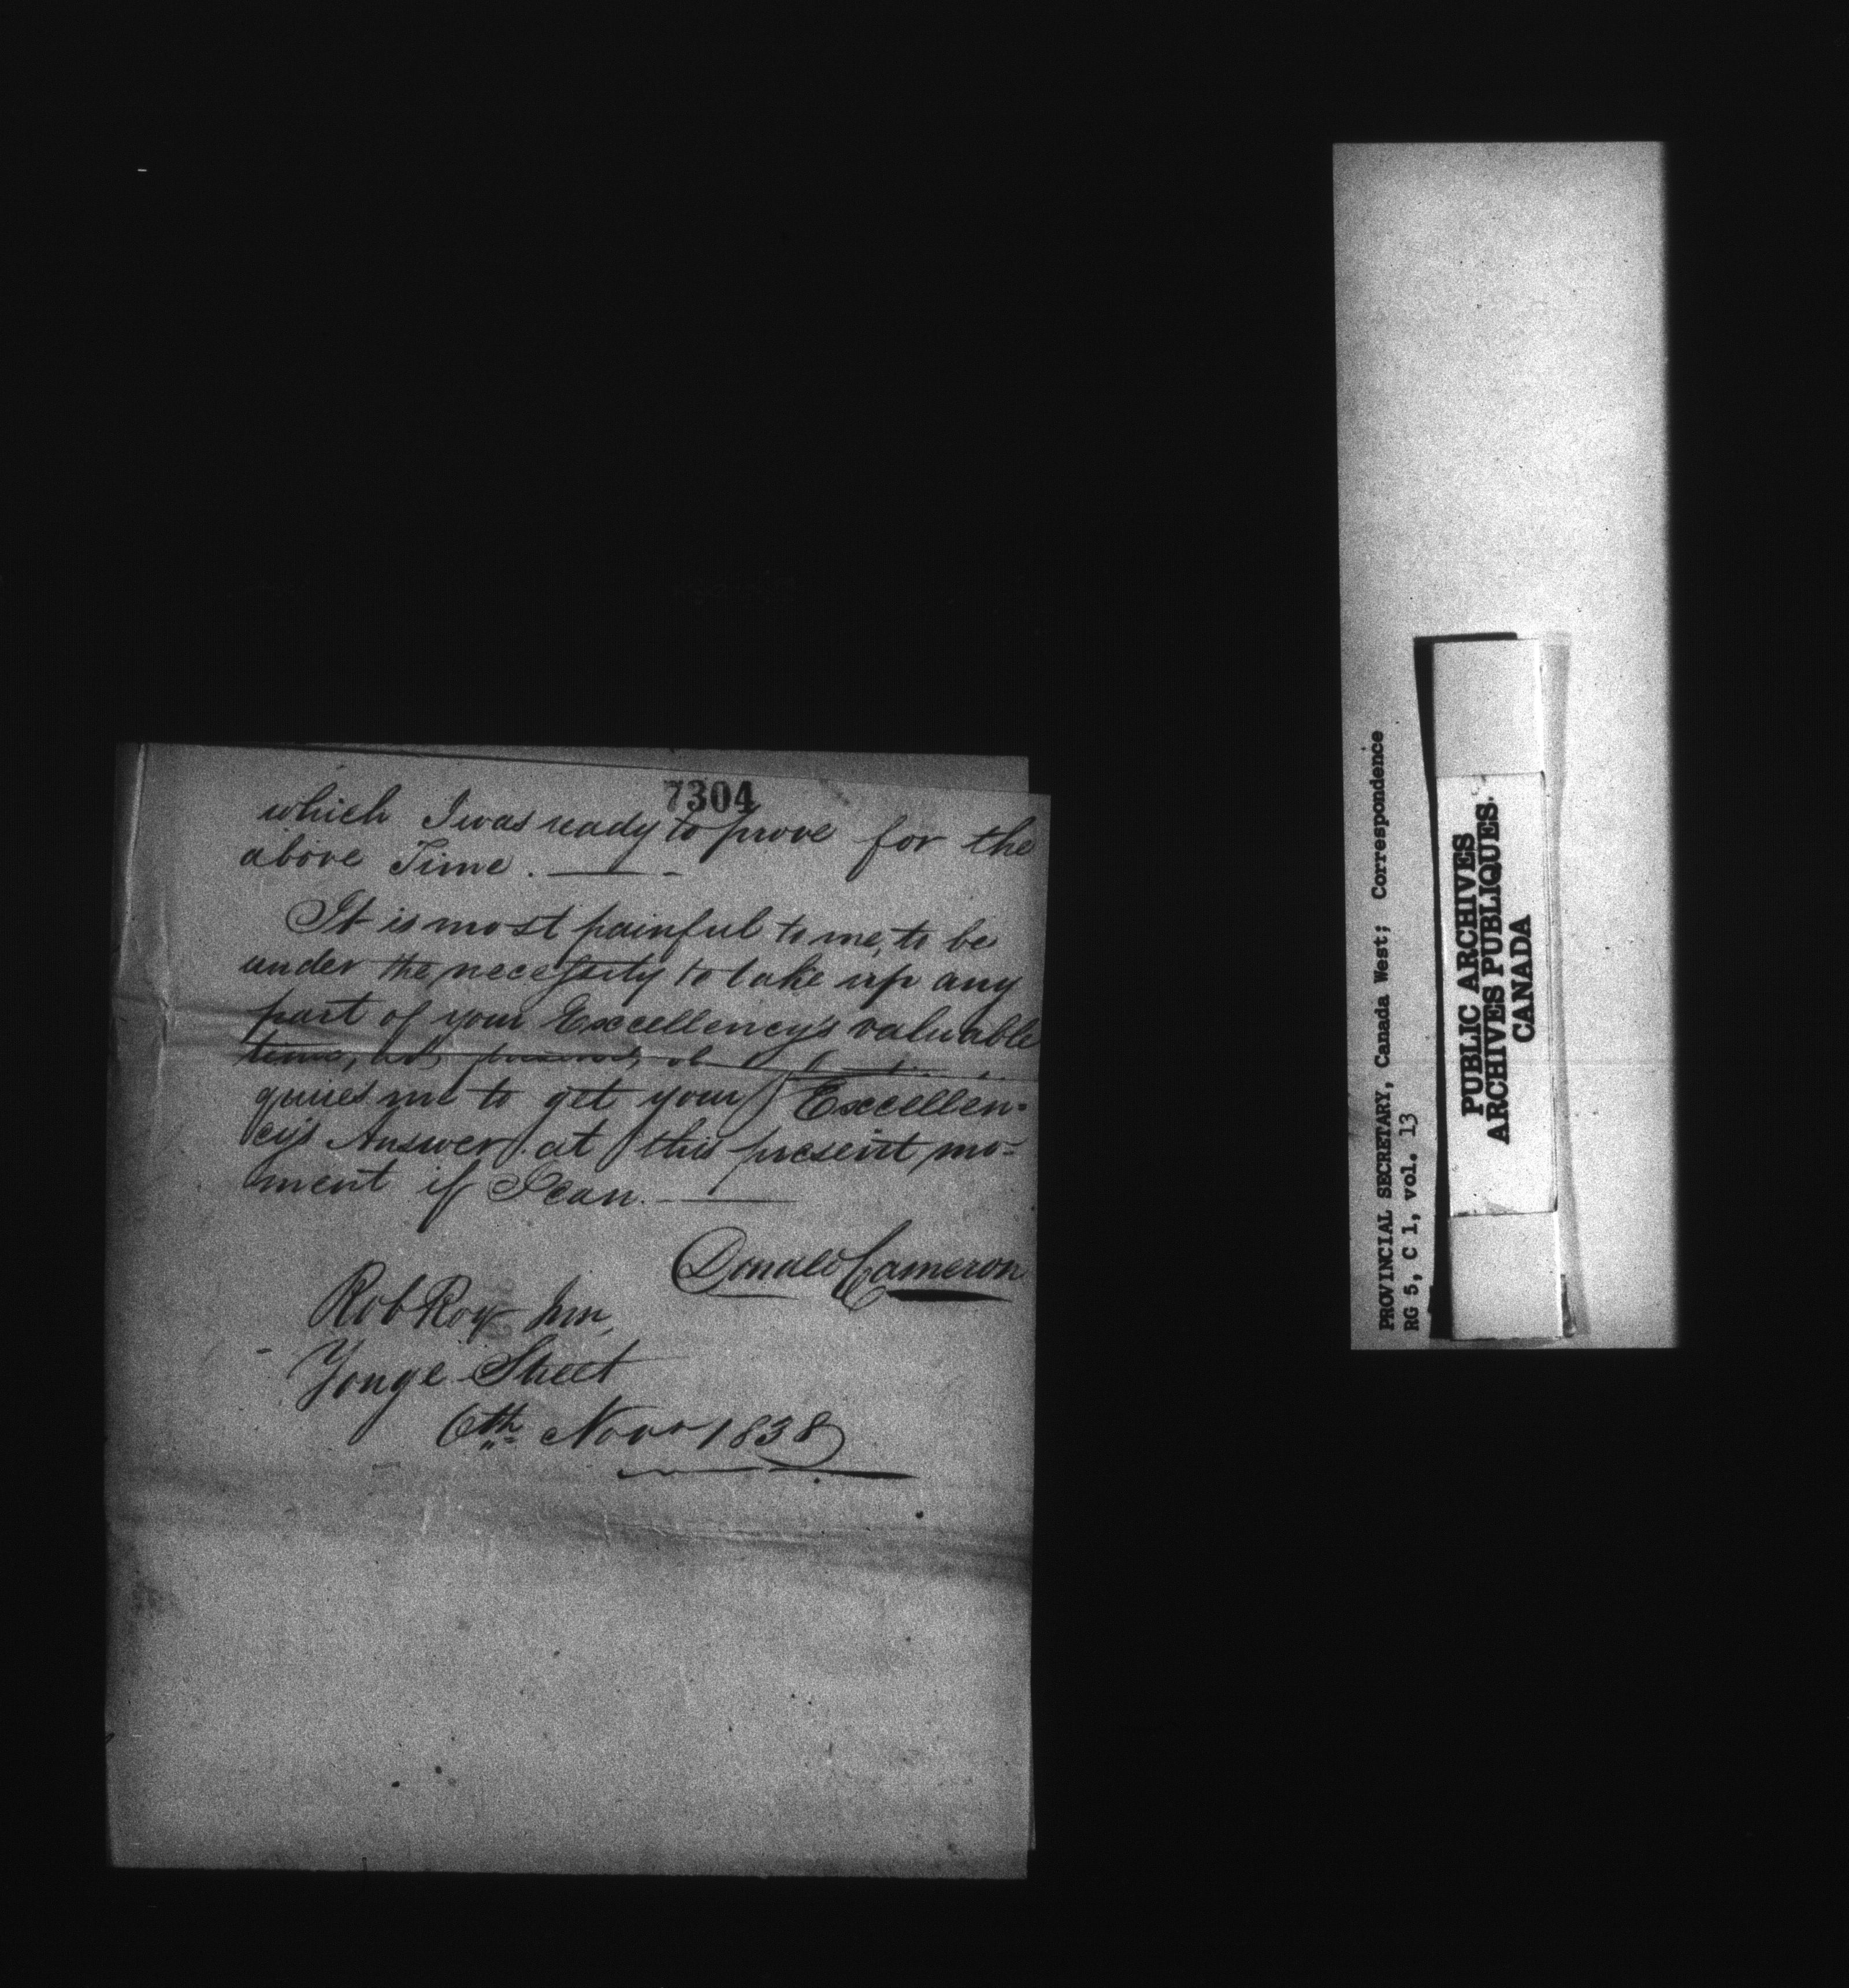 7304
which I was ready to prove for the
above Time.
It is most painful to me, to be
under the necessity to take up any
part of your Excellency's valuable
time, at
quires me to get your Excellen-
cy's Answer at this present mo-
ment if I can.
Donald Cameron
Rob Roy Inn,
Yonge Street
6th Novr 1838
PROVINCIAL SECRETARY, Canada West; Correspondence
RG 5, C 1, vol. 13
PUBLIC ARCHIVES
ARCHIVES PUBLIQUES.
CANADA